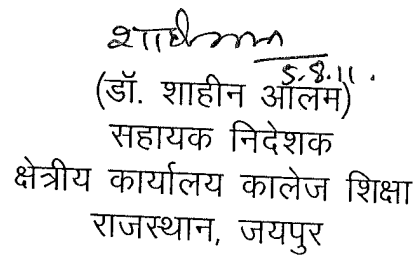 5.8.11.
(डॉ. शाहीन आलम)
सहायक निदेशक
क्षेत्रीय कार्यालय कालेज शिक्षा
राजस्थान, जयपुर